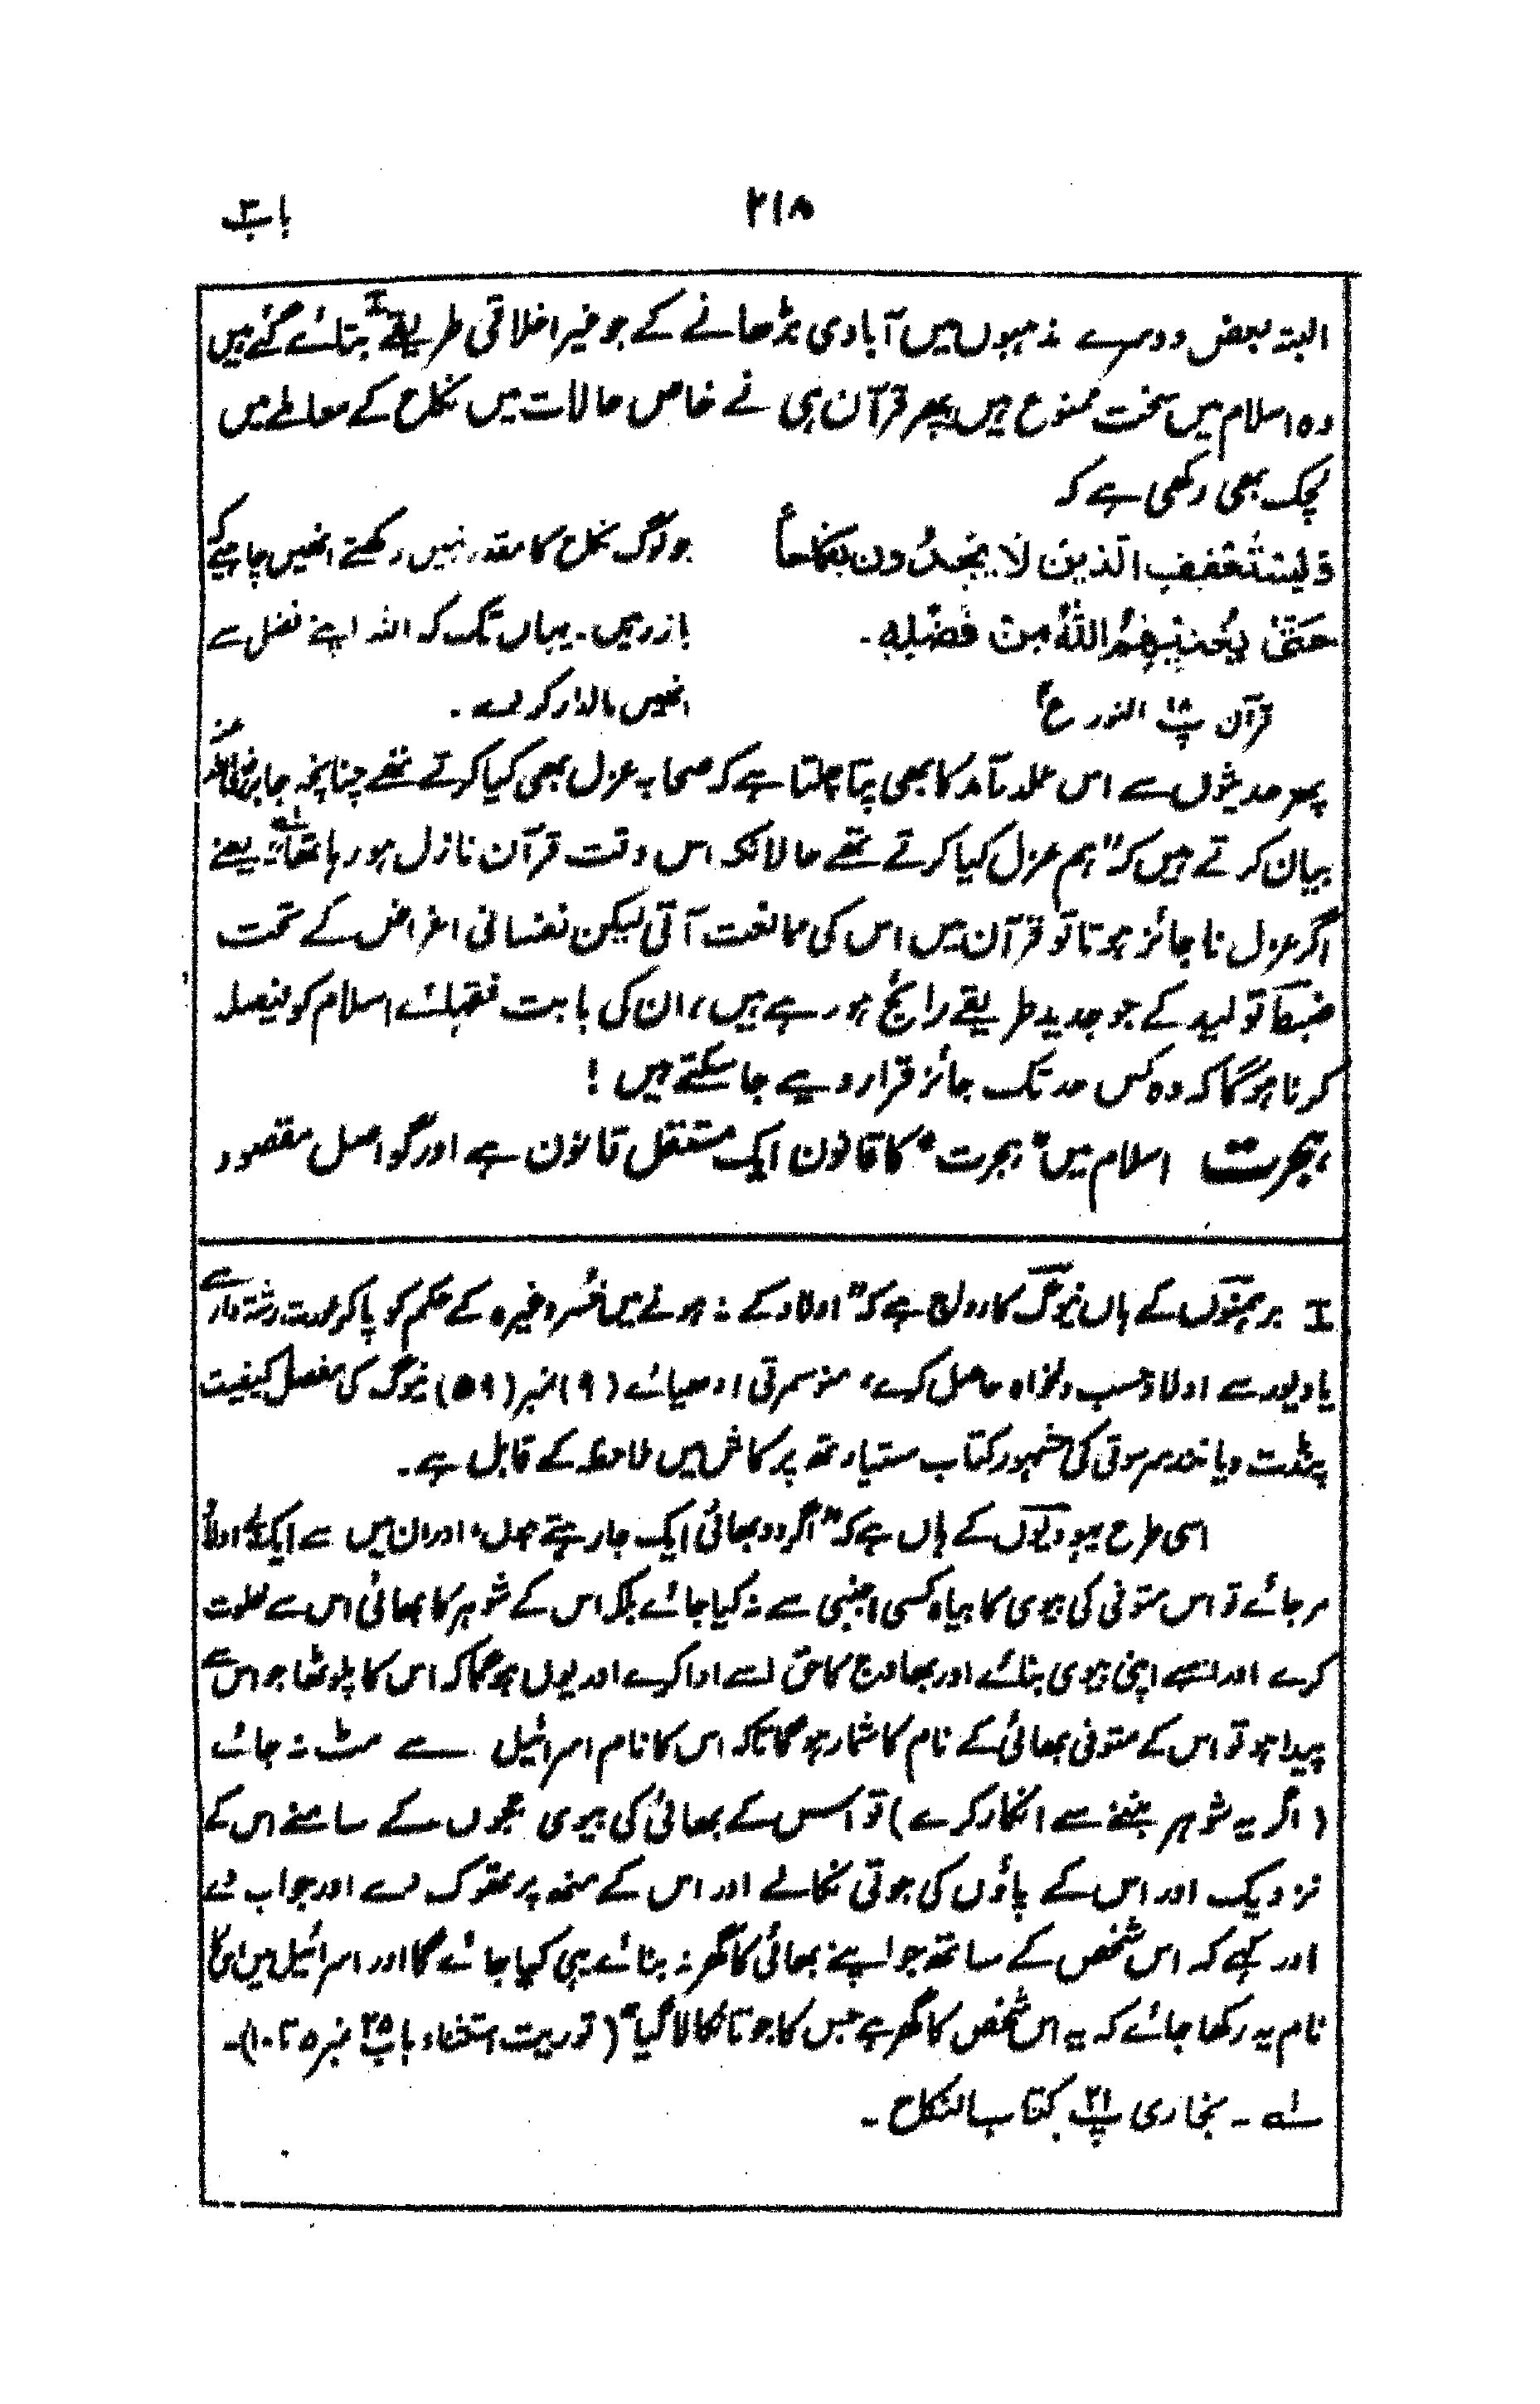 باب ۳
۲۱۸
البتہ بعض دوسرے مذہبوں میں آبادی بڑھانے کے جو غیر اخلاقی طریقے I بتائے گئے ہیں
وہ اسلام میں سخت ممنوع ہیں پھر قرآن ہی نے خاص حالات میں نکاح کے معاملے میں
لچک بھی رکھی ہے کہ
وَلْیَسْتَعْفِفِ الَّذِیْنَ لَا یَجِدُوْنَ نِکَاحاً
حَتّٰی یُغْنِیَهُمُ اللّٰهُ مِنْ فَضْلِهٖ۔
قرآن پ ۱۸ النور ع ۴
جو لوگ نکاح کا مقدور نہیں رکھتے انھیں چاہیے کہ
باز رہیں۔ یہاں تک کہ اللہ اپنے فضل سے
انھیں مالدار کر دے۔
پھر حدیثوں سے اس عملدرآمد کا بھی پتا چلتا ہے کہ صحابہ عزل بھی کیا کرتے تھے چنانچہ جابر
بیان کرتے ہیں کہ "ہم عزل کیا کرتے تھے حالانکہ اس وقت قرآن نازل ہو رہا تھا" لہ یعنے
اگر عزل ناجائز ہوتا تو قرآن میں اس کی ممانعت آتی لیکن نفسانی اغراض کے تحت
ضبط تولید کے جو جدید طریقے رائج ہو رہے ہیں، ان کی بابت فقہائے اسلام کو فیصلہ
کرنا ہوگا کہ وہ کس حد تک جائز قرار دیے جا سکتے ہیں !
ہجرت اسلام میں "ہجرت" کا قانون ایک مستقل قانون ہے اور گو اصل مقصود
I برہمنوں کے ہاں نیوگ کا رواج ہے کہ "اولاد کے نہ ہونے میں خسر وغیرہ کے حکم کو پا کر عورت رشتہ دار سے
یا دیور سے اولاد حسب دلخواہ حاصل کرے" منو سمرتی ادھیائے (۹) نمبر (۵۹) نیوگ کی مفصل کیفیت
پنڈت دیانند سرسوتی کی مشہور کتاب ستیارتھ پرکاش میں ملاحظہ کے قابل ہے۔
اسی طرح یہودیوں کے ہاں ہے کہ "اگر دو بھائی ایک جا رہتے ہوں، اور ان میں سے ایک بے اولاد
مر جائے تو اس متوفی کی بیوی کا بیاہ کسی اجنبی سے نہ کیا جائے بلکہ اس کے شوہر کا بھائی اس سے خلوت
کرے اور اسے اپنی بیوی بنائے اور بھاوج کا حق اسے ادا کرے اور یوں ہوگا کہ اس کا پلوٹھا جو اس سے
پیدا ہو تو اس کے متوفی بھائی کے نام کا شمار ہوگا تاکہ اس کا نام اسرائیل سے مٹ نہ جائے
(اگر یہ شوہر بننے سے انکار کرے) تو اس کے بھائی کی بیوی ججوں کے سامنے اس کے
نزدیک اور اس کے پاؤں کی جوتی نکالے اور اس کے منھ پر تھوک دے اور جواب دے
اور کہے کہ اس شخص کے ساتھ جو اپنے بھائی کا گھر نہ بنائے یہی کیا جائے گا اور اسرائیل میں اس کا
نام یہ رکھا جائے کہ یہ اس شخص کا گھر ہے جس کا جوتا نکالا گیا" (توریت استثناء باب ۲۵ نمبر ۵ تا ۱۰)۔
لہ ۔ بخاری پ ۲۱ کتاب النکاح ۔